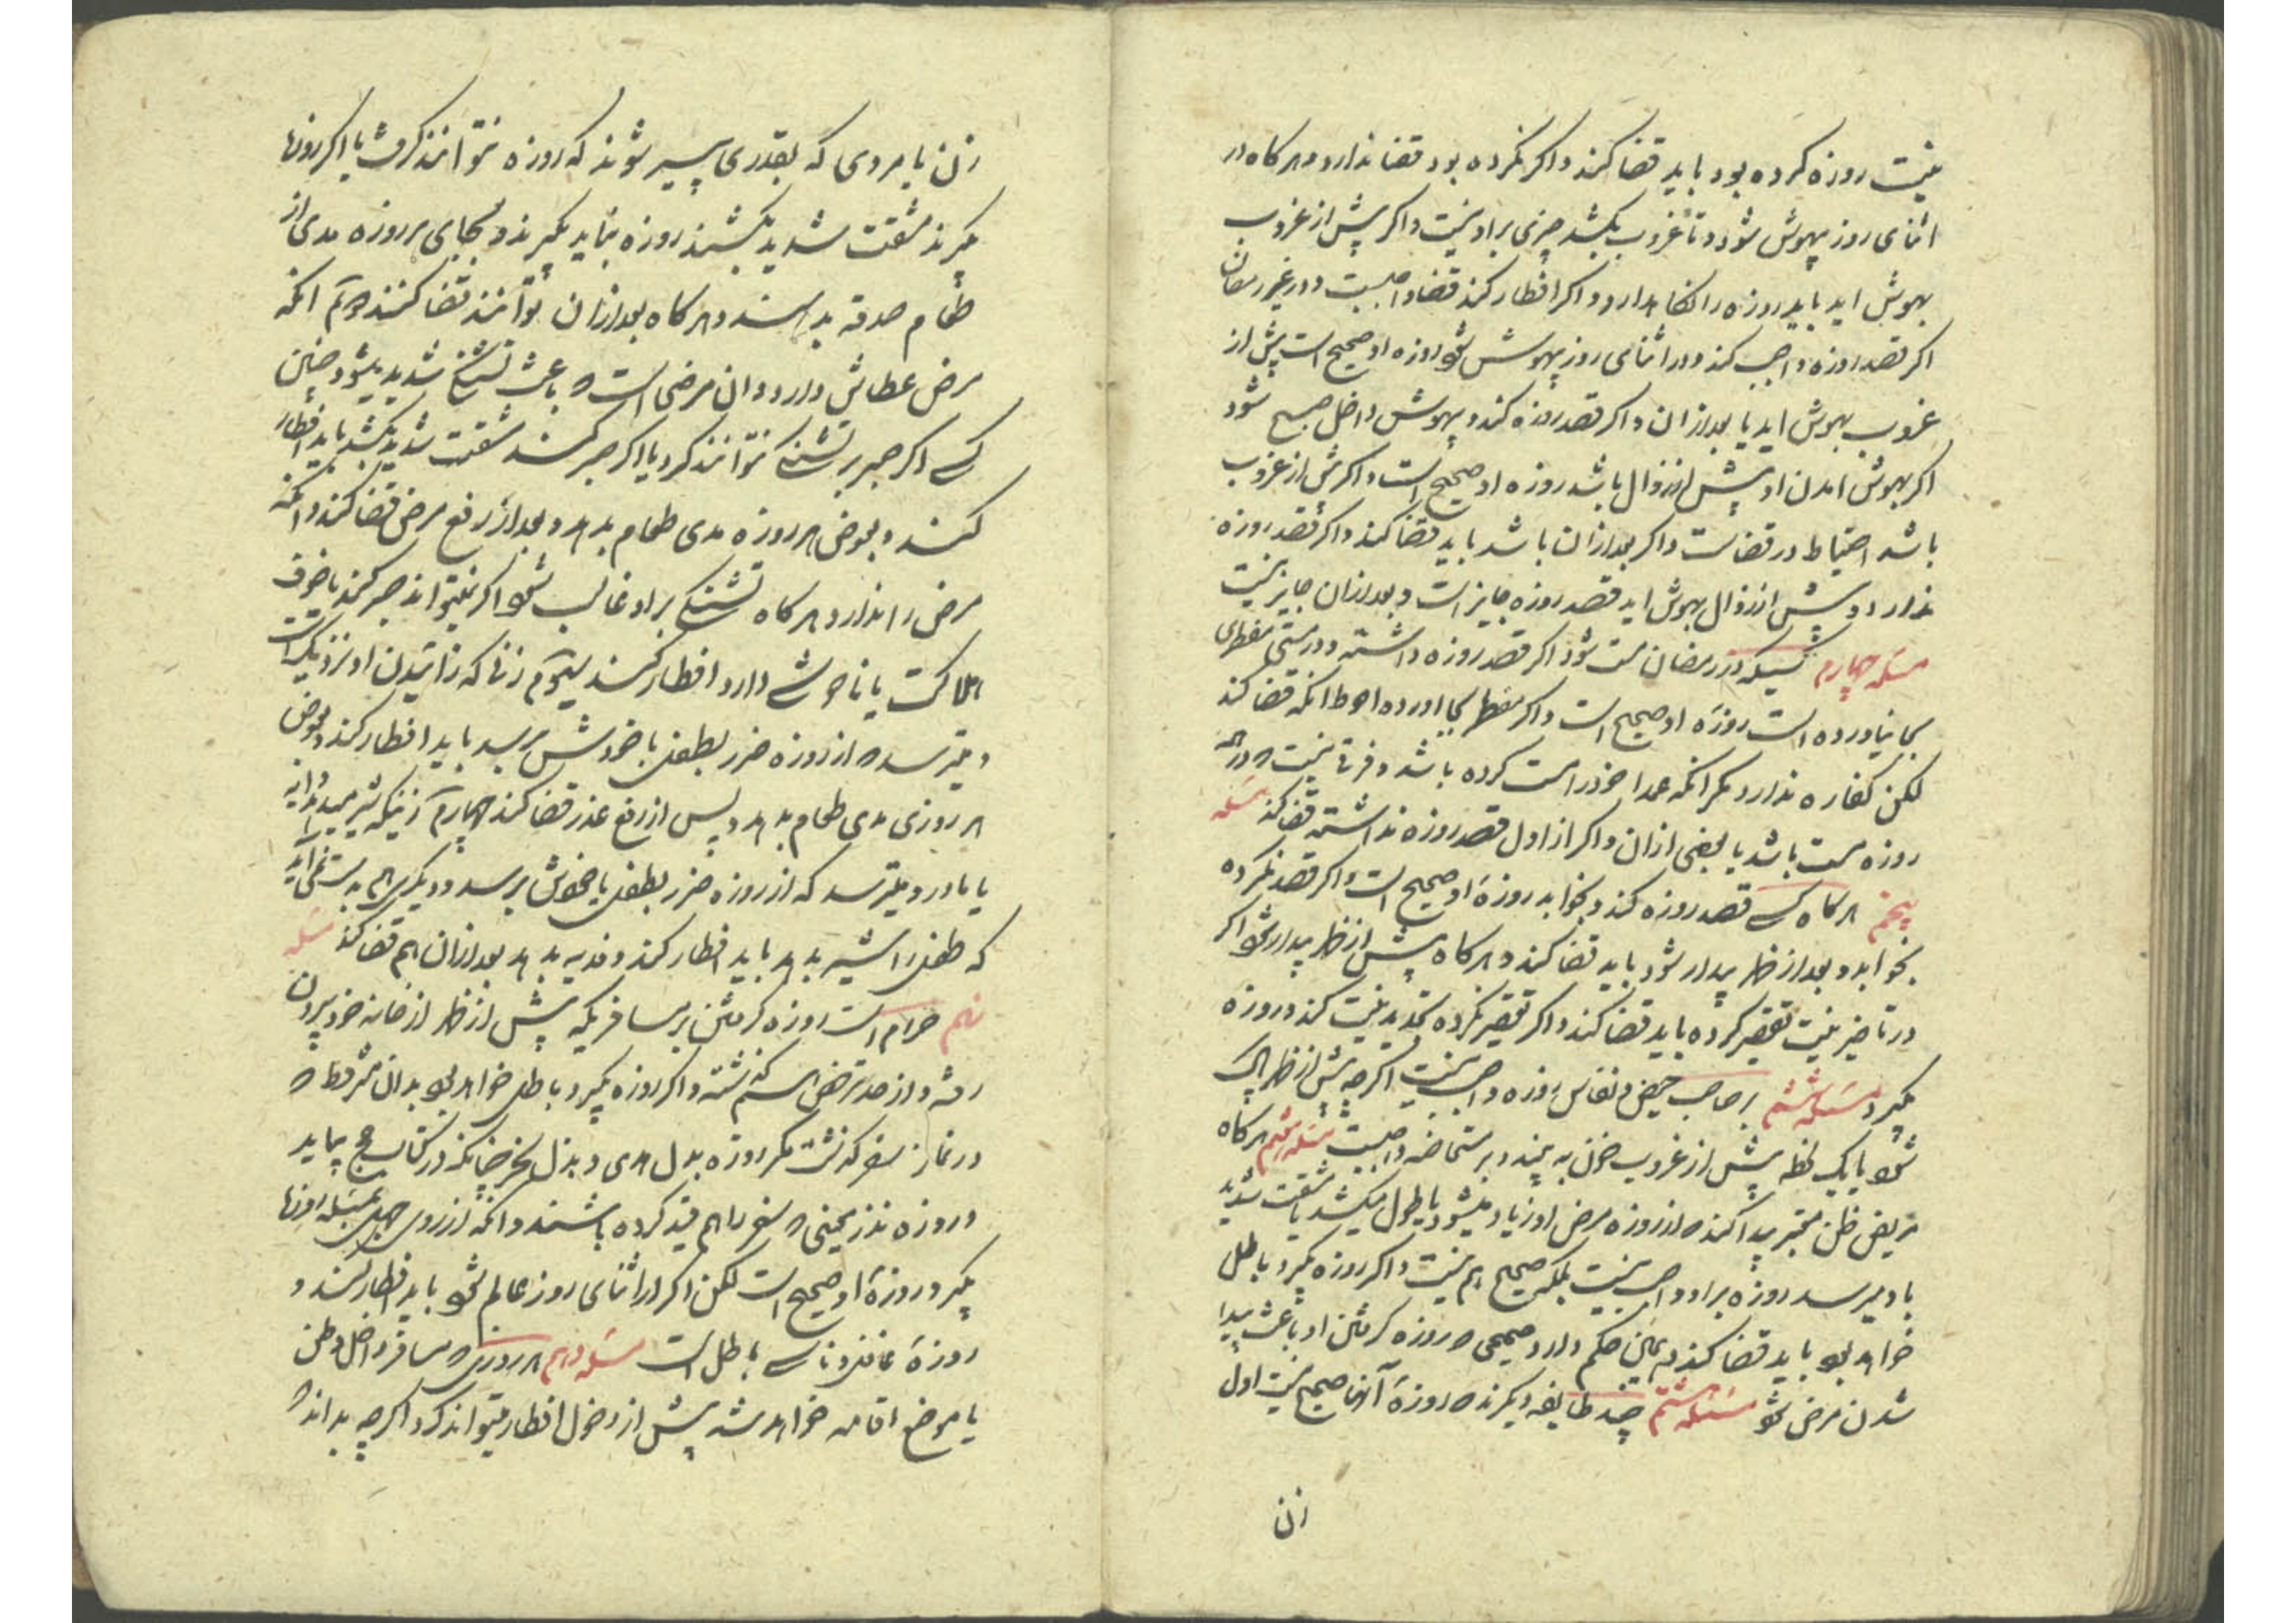 نیت روزه کرده بود باید قضا کند و اکر نکرده بود قضا ندارد و هرکاه در
اثنای روز بیهوش شود و تا غروب بکشد چیزی بر او نیست و اکر پیش از غروب
بهوش اید باید روزه را نکاه دارد و اکر افطار کند قضا واجبست و در غیر رمضان
اکر قصد روزه واجب کند و در اثنای روز بیهوش شود روزه او صحیح است پیش از
غروب بهوش اید یا بعد ازان و اکر قصد روزه کند و بیهوش داخل صبح شود
اکر بهوش امدن او پیش از زوال باشد روزه او صحیح است و اکر پیش از غروب
باشد احتیاط در قضاست و اکر بعد ازان باشد باید قضا کند و اکر قصد روزه
ندارد و پیش از زوال بهوش اید قصد روزه جایز است و بعد ازان جایز نیست
مسئله چهارم کسیکه در رمضان مست شود اکر قصد روزه داشته و در مستی مفطری
بجا نیاورده است روزه او صحیح است و اکر مفطر بجا اورده احوط انکه قضا کند
لکن کفاره ندارد مکر انکه عمدا خود را مست کرده باشد و فرقی نیست که در همه
روزه مست باشد یا بعضی ازان و اکر از اول قصد روزه نداشته قضا کند مسئله
پنجم هرکاه کسی قصد روزه کند و بخوابد روزه او صحیح است و اکر قصد نکرده
بخوابد و بعد از ظهر بیدار شود باید قضا کند و هرکاه پیش از ظهر بیدار شود اکر
در تاخیر نیت تقصیر کرده باید قضا کند و اکر تقصیر نکرده تجدید نیت کند و روزه
بکیرد مسئله ششم بر صاحب حیض و نفاس روزه واجب نیست اکرچه پیش از ظهر پاک
شود یا یک لحظه پیش از غروب خون به بیند و بر مستحاضه واجبست مسئله هفتم هرکاه
مریض ظن معتبر پیدا کند که از روزه مرض او زیاد میشود یا طول میکشد یا مشقت شدید
باو میرسد روزه بر او واجب نیست بلکه صحیح هم نیست و اکر روزه بکیرد باطل
خواهد بود باید قضا کند و همین حکم دارد صحیحی که روزه کرفتن او باعث پیدا
شدن مرض شود مسئله هشتم چند طایفه دیکرند که روزه آنها صحیح نیست اول
زن
زن یا مردی که بقدری پیر شوند که روزه نتوانند کرفت یا اکر روزها
بکیرند مشقت شدید بکشند روزه نباید بکیرند و بجای هر روزه مدی از
طعام صدقه بدهند و هرکاه بعد ازان بتوانند قضا کنند دویم انکه
مرض عطاش دارد و ان مرضی است که باعث تشنکی شدید میشود چنین
کسی اکر صبر بر تشنکی نتواند کرد یا اکر صبر کند مشقت شدید بکشد باید افطار
کند و بعوض هر روزه مدی طعام بدهد و بعد از رفع مرض قضا کند و انکه
مرض را ندارد هرکاه تشنکی بر او غالب شود اکر نمیتواند صبر کند یا خوف
هلاکت یا ناخوشی دارد افطار کند سیوم زنی که زائیدن او نزدیک است
و میترسد که از روزه ضرر بطفل یا خودش برسد باید افطار کند و بعوض
هر روزی مدی طعام بدهد و پس از رفع عذر قضا کند چهارم زنیکه شیر میدهد دایه
یا مادر و میترسد که از روزه ضرر بطفل یا خودش برسد و دیکری هم به دست نمی آید
که طفل را شیر بدهد باید افطار کند و فدیه بدهد بعد ازان هم قضا کند مسئله
نهم حرام است روزه کرفتن بر مسافریکه پیش از ظهر از خانه خود بیرون
رفته و از حد ترخص هم کذشته و اکر روزه بکیرد باطل خواهد بود بدان شرطها که
در نماز سفر کذشت مکر روزه بدل هدی و بذل نحر چنانکه در کتاب حج بیاید
و روزه نذر معینی که سفر را هم قید کرده باشند و انکه از روی جهل بمسئله روزها
بکیرد روزه او صحیح است لکن اکر در اثنای روز عالم شود باید افطار کند و
روزه غافل و ناسی باطل است مسئله دهم هر روزی که مسافر داخل وطن
یا موضع اقامه خواهد شد پیش از دخول افطار میتواند کرد اکرچه بداند که